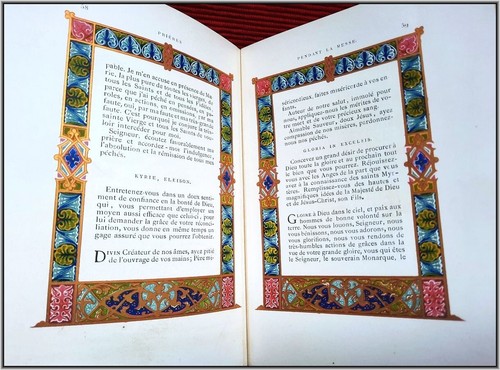 58
PRIÈRES
pable. Je m'en accuse en présence de Ma-
rie, la plus pure de toutes les vierges, de
tous les Saints et de tous les Fidèles,
parce que j'ai péché en pensées, en pa-
roles, en actions, en omissions, par ma
faute, oui, par ma faute et ma très grande
faute. C'est pourquoi je conjure la très-
sainte Vierge et tous les Saints de vou-
loir intercéder pour moi.
Seigneur, écoutez favorablement ma
prière et accordez-moi l'indulgence,
l'absolution et la rémission de tous mes
péchés.
KYRIE, ELEISON.
Entretenez-vous dans un doux senti-
ment de confiance en la bonté de Dieu,
qui, vous permettant d'employer un
moyen aussi efficace que celui-ci, pour
lui demander la grâce de votre réconci-
liation, vous donne en même temps un
gage assuré que vous pourrez l'obtenir.
DIVIN Créateur de nos âmes, ayez pitié
de l'ouvrage de vos mains; Père mi-
PENDANT LA MESSE.
59
séricordieux, faites miséricorde à vos en-
fants.
Auteur de notre salut, immolé pour
nous, appliquez-nous les mérites de vo-
tre mort et de votre précieux sang.
Aimable Sauveur, doux Jésus, ayez
compassion de nos misères, pardonnez-
nous nos péchés.
GLORIA IN EXCELSIS.
Concevez un grand désir de procurer à
Dieu toute la gloire et au prochain tout
le bien que vous pourrez. Réjouissez-
vous avec les Anges de la part que vous
avez à la connaissance des saints Mys-
tères. Remplissez-vous des hautes et
magnifiques idées de la Majesté de Dieu
et de Jésus-Christ, son Fils.
GLOIRE à Dieu dans le ciel, et paix aux
hommes de bonne volonté sur la
terre. Nous vous louons, Seigneur, nous vous
bénissons, nous vous adorons, nous vous
glorifions, nous vous rendons de
très-humbles actions de grâces dans la
vue de votre grande gloire, vous qui êtes
le Seigneur, le souverain Monarque, le